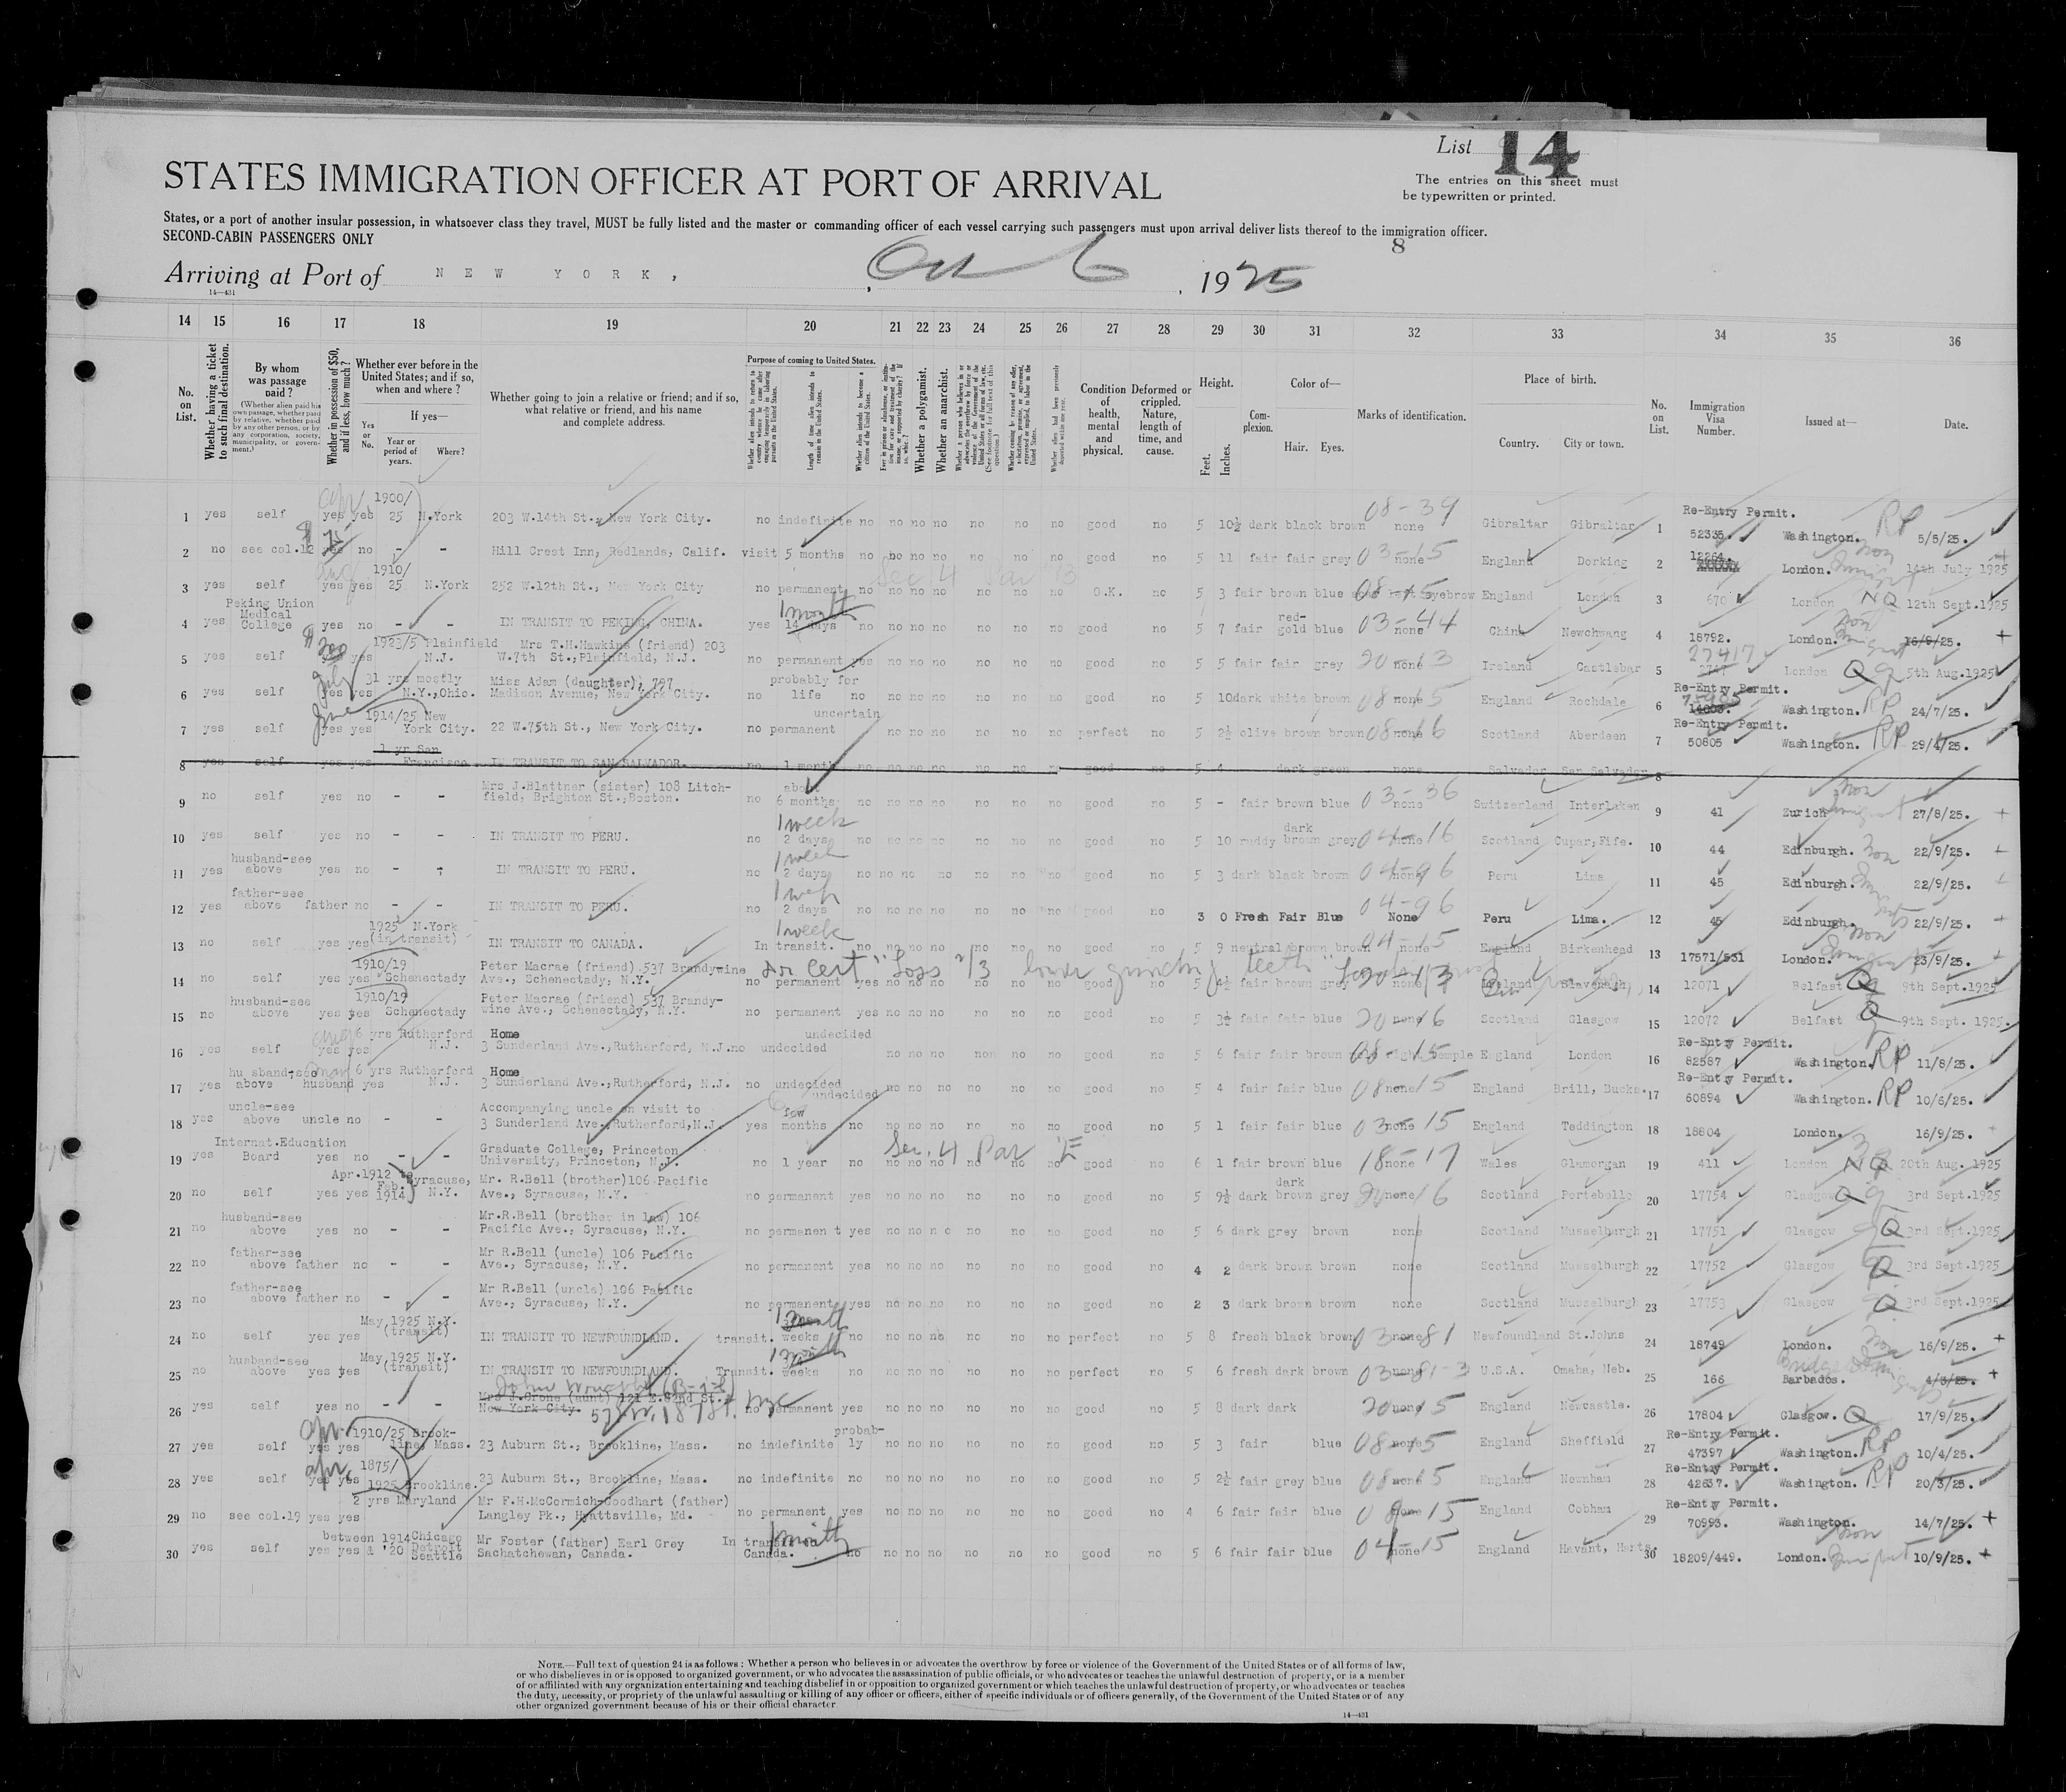 List 14
The entries on this sheet must
be typewritten or printed.
STATES IMMIGRATION OFFICER AT PORT OF ARRIVAL
States, or a port of another insular possession, in whatsoever class they travel, MUST be fully listed and the master or commanding officer of each vessel carrying such passengers must upon arrival deliver lists thereof to the immigration officer.
SECOND-CABIN PASSENGERS ONLY
8
Arriving at Port of NEW YORK, Oct 6, 1925
14—431
14 15 16 17 18 19 20 21 22 23 24 25 26 27 28 29 30 31 32 33 34 35 36
No. on List.
Whether having a ticket to such final destination.
By whom was passage paid?
(Whether alien paid his own passage, whether paid by relative, whether paid by any other person, or by any corporation, society, municipality, or government.)
Whether in possession of $50, and if less, how much?
Whether ever before in the United States; and if so, when and where?
Yes or No.
If yes—
Year or period of years.
Where?
Whether going to join a relative or friend; and if so, what relative or friend, and his name and complete address.
Purpose of coming to United States.
Length of time alien intends to remain in the United States.
Whether alien intends to become a citizen of the United States.
Whether a polygamist.
Whether an anarchist.
Condition of health, mental and physical.
Deformed or crippled. Nature, length of time, and cause.
Height.
Feet. Inches.
Complexion.
Color of—
Hair. Eyes.
Marks of identification.
Place of birth.
Country. City or town.
No. on List.
Immigration Visa Number.
Issued at—
Date.
1 yes self yes yes 1900/25 N.York 203 W.14th St., New York City. no indefinite no no no no no no no good no 5 10½ dark black brown none 08-39 Gibraltar Gibraltar 1 Re-Entry Permit. 52335. Washington. RP 5/5/25.
2 no see col.12 yes no - - Hill Crest Inn, Redlands, Calif. visit 5 months no no no no no no no good no 5 11 fair fair grey none 03-15 England Dorking 2 12264. London. 14th July 1925
3 yes self yes yes 1910/25 N.York 252 W.12th St., New York City no permanent no no no no no no no O.K. no 5 3 fair brown blue eyebrow 08-15 England London 3 670 London NQ 12th Sept.1925
4 yes Peking Union Medical College yes no - - IN TRANSIT TO PEKING, CHINA. yes 14 days 1 month no no no no no no no good no 5 7 fair red-gold blue none 03-44 China Newchwang 4 18792. London. 16/9/25.
5 yes self $200 yes 1923/5 Plainfield N.J. Mrs T.H.Hawkins (friend) 203 W.7th St.,Plainfield, N.J. no permanent yes no no no no no no good no 5 5 fair fair grey none Ireland Castlebar 5 27417 London Q 5th Aug.1925
6 yes self yes yes 31 yrs mostly N.Y.,Ohio. Miss Adam (daughter), 787 Madison Avenue, New York City. no probably for life no no no no no no no good no 5 10 dark white brown none 08-15 England Rochdale 6 Re-Entry Permit. Washington. RP 24/7/25.
7 yes self yes yes 1914/25 New York City. 22 W.75th St., New York City. no permanent uncertain no no no no no no perfect no 5 2½ olive brown brown none 08-16 Scotland Aberdeen 7 Re-Entry Permit. 50805 Washington. RP 29/4/25.
8 yes self yes yes 1 yr San Francisco IN TRANSIT TO SAN SALVADOR. no 1 month no no no no no no good no 5 4 dark green none Salvador San Salvador 8
9 no self yes no - - Mrs J.Blattner (sister) 108 Litchfield, Brighton St.,Boston. no about 6 months no no no no no no no good no 5 - fair brown blue none 03-36 Switzerland Interlaken 9 41 Zurich 27/8/25.
10 yes self yes no - - IN TRANSIT TO PERU. no 2 days 1 week no no no no no no no good no 5 10 ruddy dark brown grey none 04-16 Scotland Cupar,Fife. 10 44 Edinburgh. 22/9/25.
11 yes husband-see above yes no - - IN TRANSIT TO PERU. no 2 days 1 week no no no no no no no good no 5 3 dark black brown none 04-96 Peru Lima 11 45 Edinburgh. 22/9/25.
12 yes father-see above father no - - IN TRANSIT TO PERU. no 2 days 1 week no no no no no no no good no 3 0 Fresh Fair Blue None 04-96 Peru Lima. 12 45 Edinburgh. 22/9/25.
13 no self yes yes 1925 N.York (in transit) IN TRANSIT TO CANADA. In transit. 1 week no no no no no no no good no 5 9 neutral brown brown none 04-15 England Birkenhead 13 17571/531 London. 23/9/25.
14 no self yes yes 1910/19 Schenectady Peter Macrae (friend) 537 Brandywine Ave., Schenectady, N.Y. no permanent yes no no no Dr Cert "Loss 2/3 lower grinding teeth" 5 4½ fair brown grey none Ireland 14 12071 Belfast Q 9th Sept.1925
15 no husband-see above yes yes 1910/19 Schenectady Peter Macrae (friend) 537 Brandywine Ave., Schenectady, N.Y. no permanent yes no no no no no no good no 5 3½ fair fair blue none 20-16 Scotland Glasgow 15 12072 Belfast Q 9th Sept. 1925.
16 yes self yes yes 6 yrs Rutherford N.J. Home 3 Sunderland Ave.,Rutherford, N.J. no undecided undecided no no no no no no good no 5 6 fair fair brown temple 08-15 England London 16 Re-Entry Permit. 82587 Washington. RP 11/8/25.
17 yes husband-see above husband yes 6 yrs Rutherford N.J. Home 3 Sunderland Ave.,Rutherford, N.J. no undecided undecided no no no no no no good no 5 4 fair fair blue none 08-15 England Brill, Bucks. 17 Re-Entry Permit. 60894 Washington. RP 10/6/25.
18 yes uncle-see above uncle no - - Accompanying uncle on visit to 3 Sunderland Ave.,Rutherford,N.J. yes few months no no no no no no no good no 5 1 fair fair blue none 03-15 England Teddington 18 18804 London. 16/9/25.
19 yes Internat.Education Board yes no - - Graduate College, Princeton University, Princeton, N.J. no 1 year no Sec. 4 Par E no no no no no no good no 6 1 fair brown blue none 18-17 Wales Glamorgan 19 411 London NQ 20th Aug. 1925
20 no self yes yes Apr.1912 to Feb. 1914 Syracuse, N.Y. Mr. R.Bell (brother)106 Pacific Ave., Syracuse, N.Y. no permanent yes no no no no no no good no 5 9½ dark dark brown grey none 20-16 Scotland Portobello 20 17754 Glasgow Q 3rd Sept.1925
21 no husband-see above yes no - - Mr.R.Bell (brother in law) 106 Pacific Ave., Syracuse, N.Y. no permanent yes no no no no no no good no 5 6 dark grey brown none Scotland Musselburgh 21 17751 Glasgow Q 3rd Sept.1925
22 no father-see above father no - - Mr R.Bell (uncle) 106 Pacific Ave., Syracuse, N.Y. no permanent yes no no no no no no good no 4 2 dark brown brown none Scotland Musselburgh 22 17752 Glasgow Q 3rd Sept.1925
23 no father-see above father no - - Mr R.Bell (uncle) 106 Pacific Ave., Syracuse, N.Y. no permanent yes no no no no no no good no 2 3 dark brown brown none Scotland Musselburgh 23 17753 Glasgow Q 3rd Sept.1925
24 no self yes yes May 1925 N.Y. (transit) IN TRANSIT TO NEWFOUNDLAND. transit. weeks 1 month no no no no no no no perfect no 5 8 fresh black brown none 03-81 Newfoundland St.Johns 24 18749 London. 16/9/25.
25 no husband-see above yes yes May 1925 N.Y. (transit) IN TRANSIT TO NEWFOUNDLAND. Transit. weeks 1 month no no no no no no no perfect no 5 6 fresh dark brown none 03-81-3 U.S.A. Omaha, Neb. 25 166 Barbados. 4/3/25.
26 yes self yes no - - Mrs J.Crone (aunt) 121 E.82nd St., New York City. no permanent yes no no no no no no good no 5 8 dark dark none 20-15 England Newcastle. 26 17804 Glasgow. Q 17/9/25.
27 yes self yes yes 1910/25 Brookline, Mass. 23 Auburn St., Brookline, Mass. no indefinite probably no no no no no no good no 5 3 fair blue none 08-15 England Sheffield 27 Re-Entry Permit. 47397 Washington. RP 10/4/25.
28 yes self yes yes 1875/1925 Brookline. 23 Auburn St., Brookline, Mass. no indefinite no no no no no no no good no 5 2½ fair grey blue none 08-15 England Newnham 28 Re-Entry Permit. 42637. Washington. RP 20/3/25.
29 no see col.19 yes yes 2 yrs Maryland Mr F.H.McCormich-Goodhart (father) Langley Pk., Hyattsville, Md. no permanent yes no no no no no no good no 4 6 fair fair blue none 08-15 England Cobham 29 Re-Entry Permit. 70993. Washington. 14/7/25.
30 yes self yes yes between 1914 & '20 Chicago Detroit Seattle Mr Foster (father) Earl Grey Sachatchewan, Canada. In transit Canada. 1 month no no no no no no no good no 5 6 fair fair blue none 04-15 England Havant, Hants. 30 18209/449. London. 10/9/25.
NOTE.—Full text of question 24 is as follows: Whether a person who believes in or advocates the overthrow by force or violence of the Government of the United States or of all forms of law,
or who disbelieves in or is opposed to organized government, or who advocates the assassination of public officials, or who advocates or teaches the unlawful destruction of property, or is a member
of or affiliated with any organization entertaining and teaching disbelief in or opposition to organized government or which teaches the unlawful destruction of property, or who advocates or teaches
the duty, necessity, or propriety of the unlawful assaulting or killing of any officer or officers, either of specific individuals or of officers generally, of the Government of the United States or of any
other organized government because of his or their official character
14—431